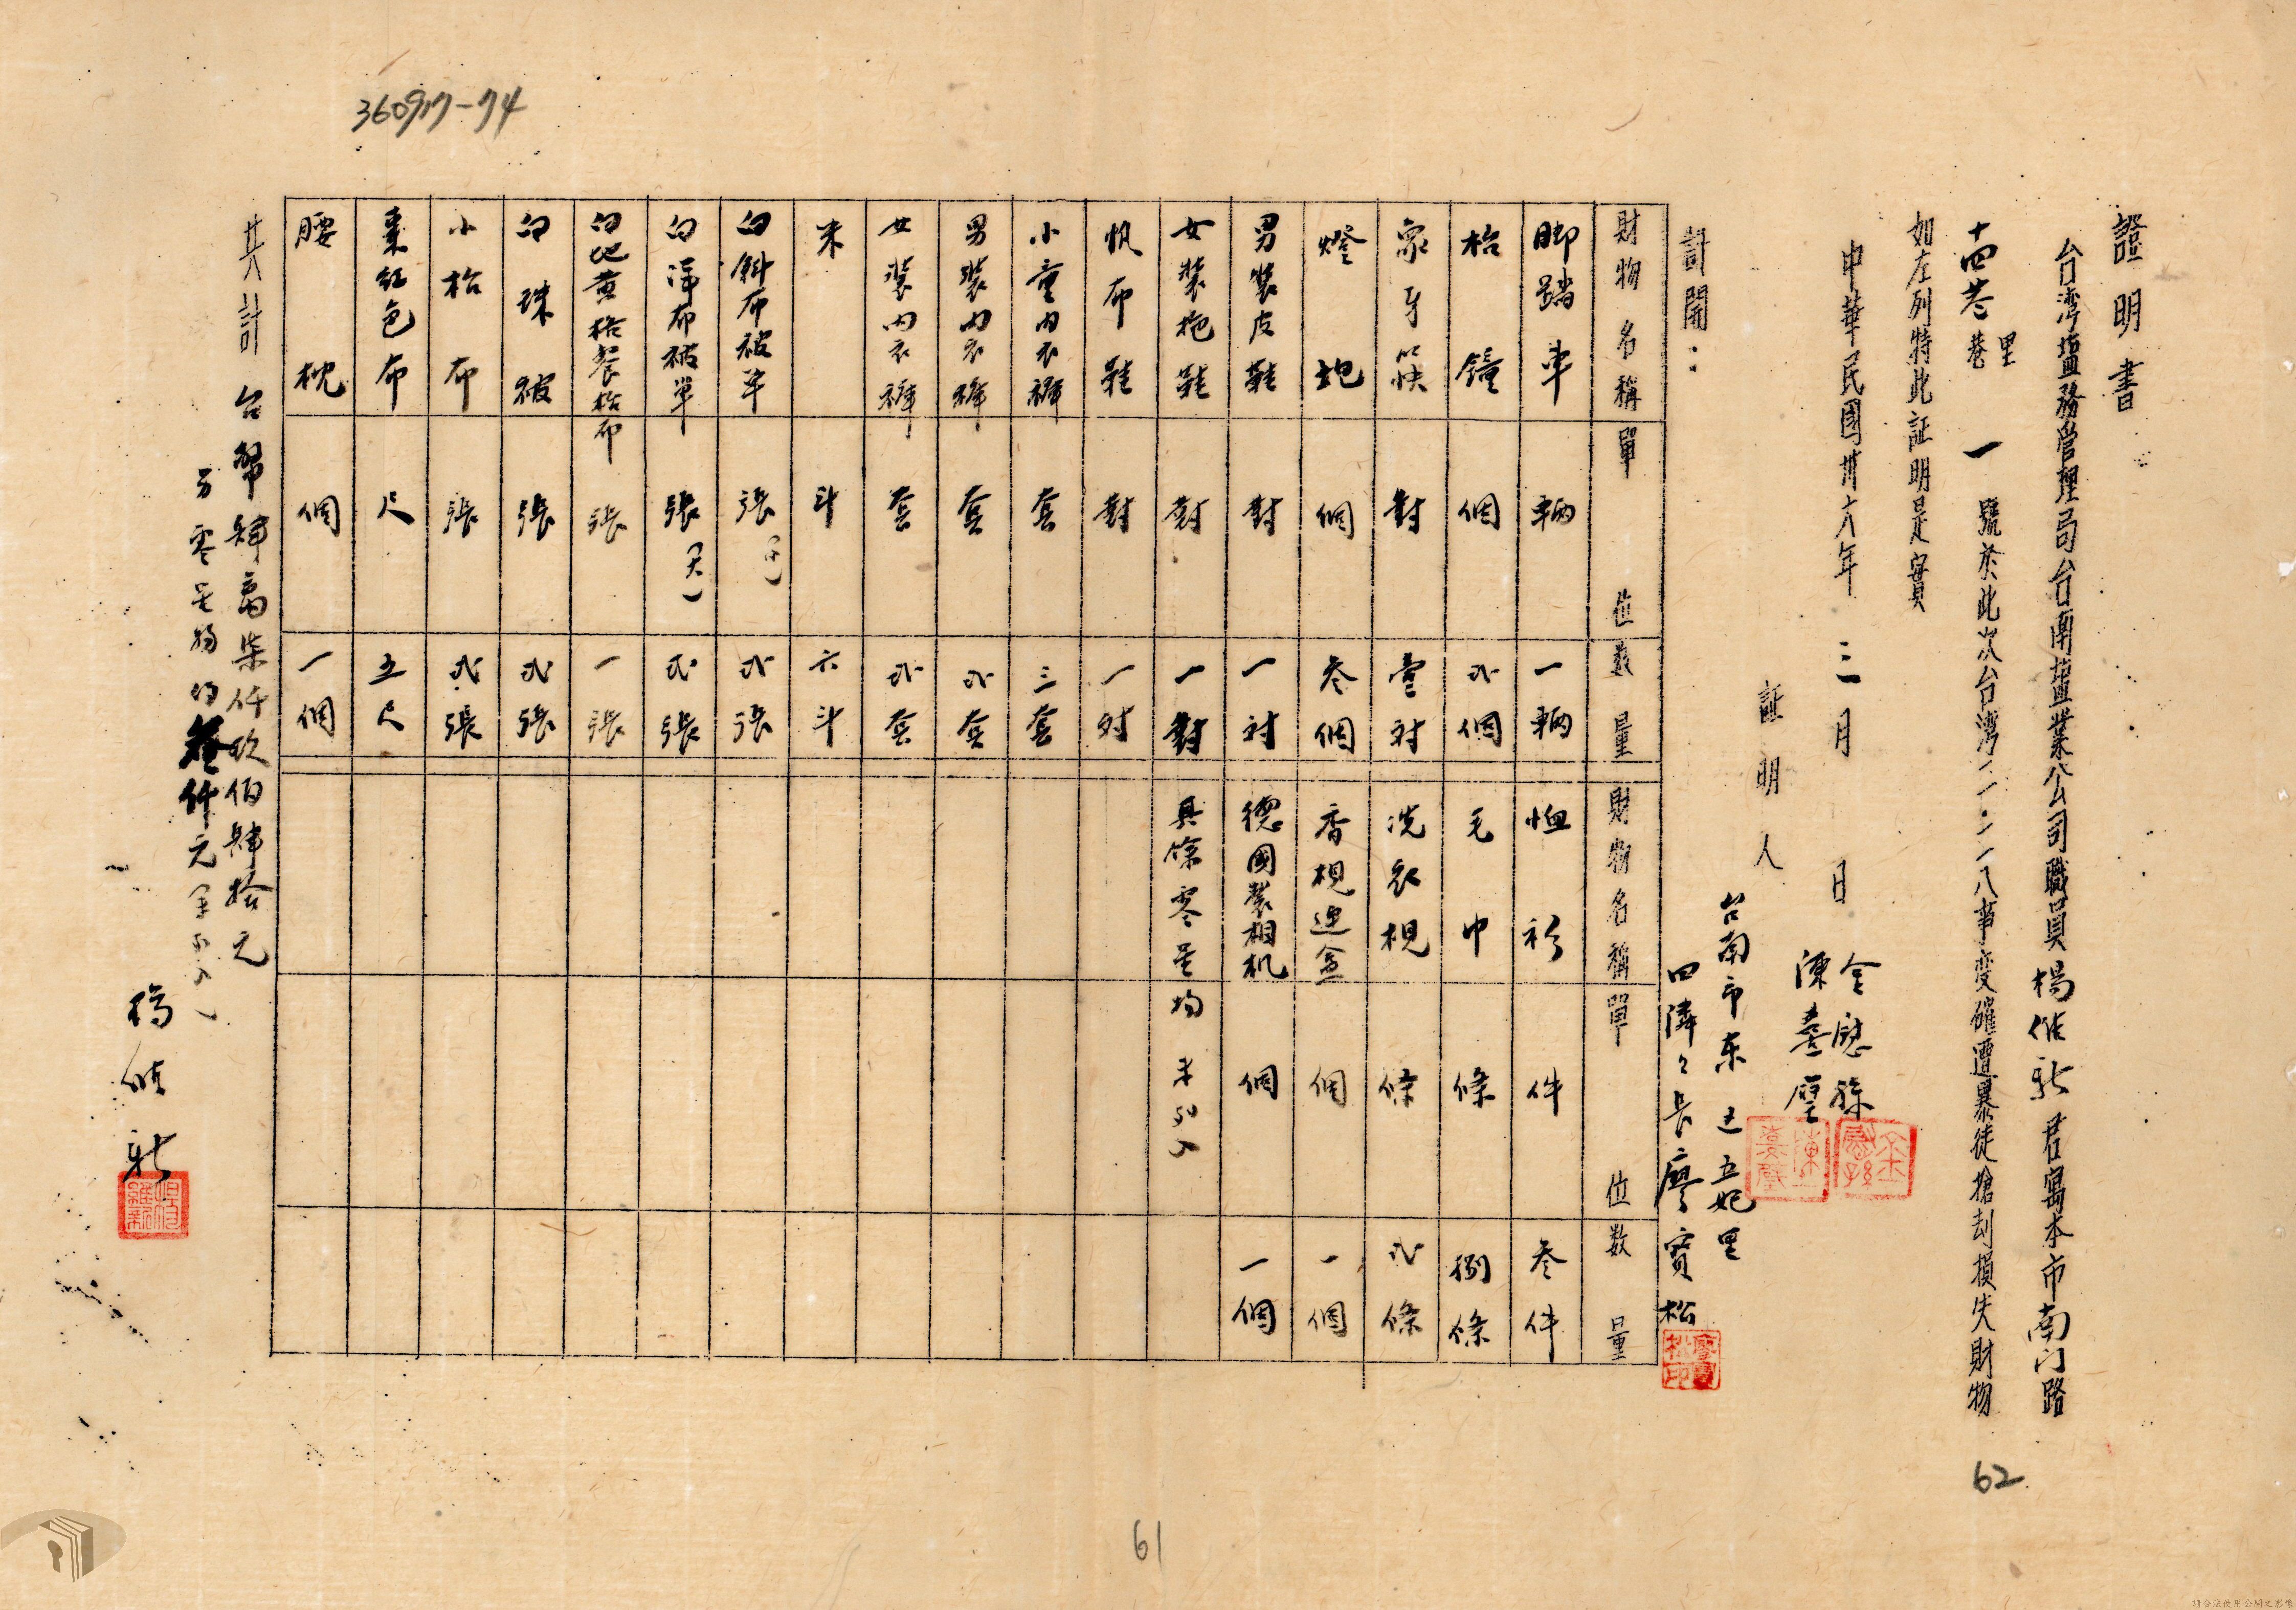 證明書
台湾塩務管理局台南塩業公司職員楊維新君寓本市南门路
十四巷
里
巷
一號於此次台湾二·二八事变確遭暴徒搶刦損失財物
如左列特此証明是实
中華民國卅六年三月 日
証明人
金慰孫
陳憙
台南市東区五妃里
四隣々長廖寶松
計開：
財物名稱 單位 数量 財物名稱 單位 数量
脚踏車 輌 一輌 恤衫 件 叁件
枱鐘 個 弍個 毛巾 條 捌條
象牙筷 對 壹対 洗衣梘 條 弍條
燈炮 個 叁個 香梘連盒 個 一個
男裝皮鞋 對 一対 德國製相机 個 一個
女裝拖鞋 對 一對 其餘零星物未列入
帆布鞋 對 一対
小童内衣褲 套 三套
男裝内衣褲 套 弍套
女裝内衣褲 套 弍套
米 斗 六斗
白斜布被单 張(中) 弍張
白洋布被單 張(大) 弍張
白地黄格餐枱布 張 一張
白珠被 張 弍張
小枱布 張 弍張
棗紅色布 尺 五尺
腰枕 個 一個
共計 台幣肆萬柒仟玖佰肆拾元
另零星物約叁仟元
楊維新
360917-74
61
62
請合法使用公開之影像